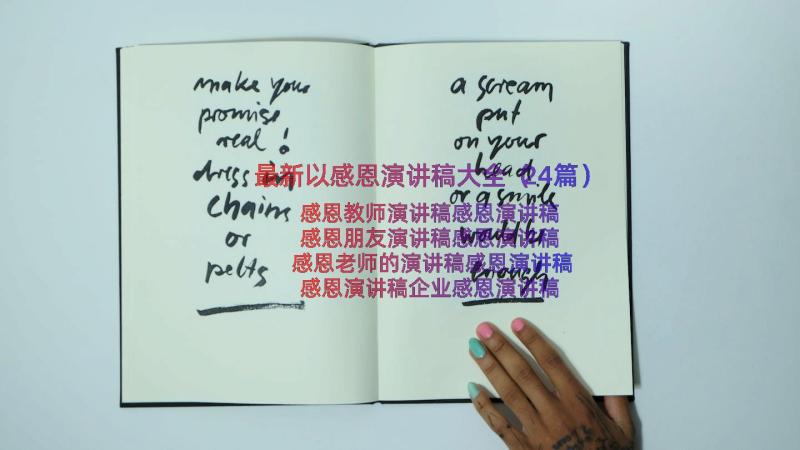 make your
promise
real!
dress in
chains
or
pelts
a scream
put
on your
head
or a smile
would be
enough
最新以感恩演讲稿大全（24篇）
感恩教师演讲稿感恩演讲稿
感恩朋友演讲稿感恩演讲稿
感恩老师的演讲稿感恩演讲稿
感恩演讲稿企业感恩演讲稿